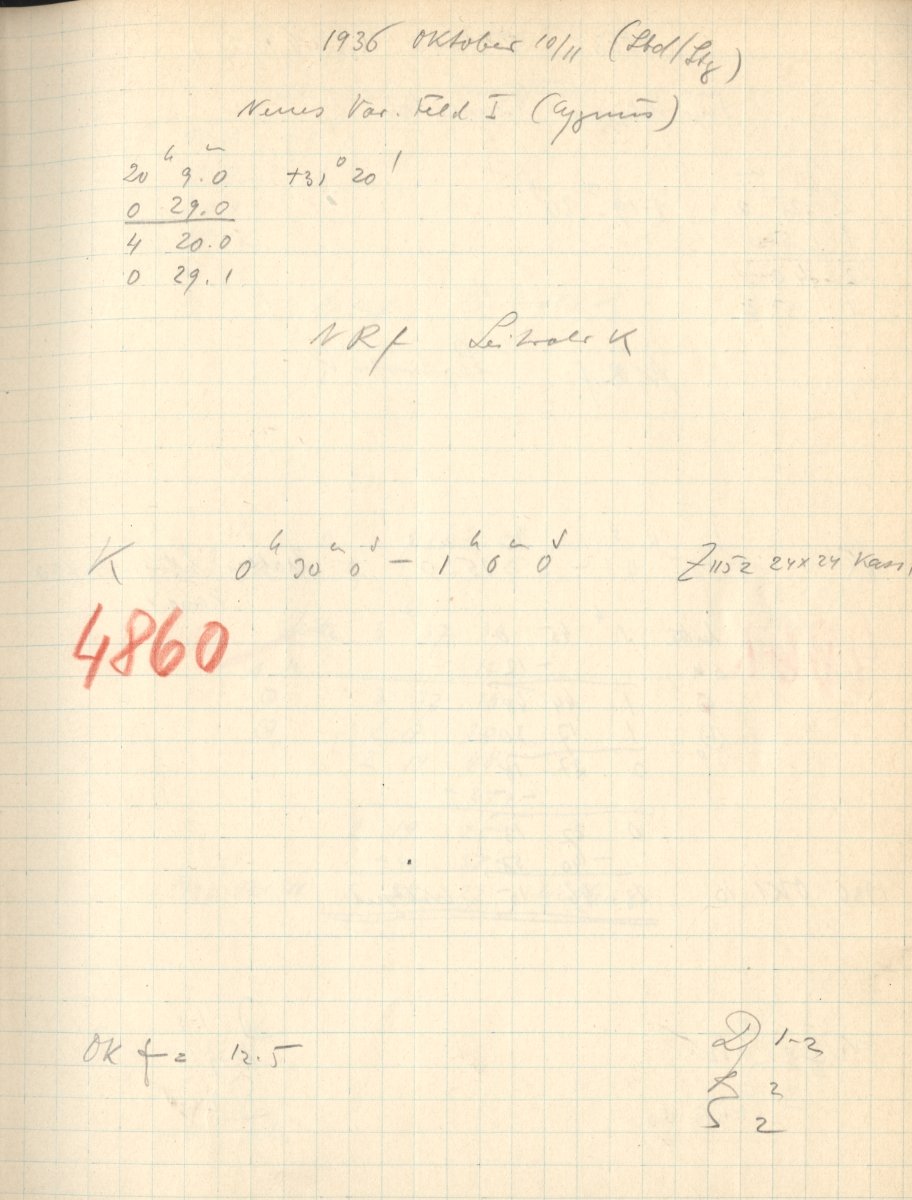 1936 Oktober 10/11 (Std/Stg)
Neues Var. Feld I (Cygnus)
20h 9m.0 +31° 20'
0 29.0
4 20.0
0 29.1
NRf K
K 0h 30m 0s – 1h 6m 0s Z 1152 24x24
4860
OK f = 12.5
D 1-2
2
S 2